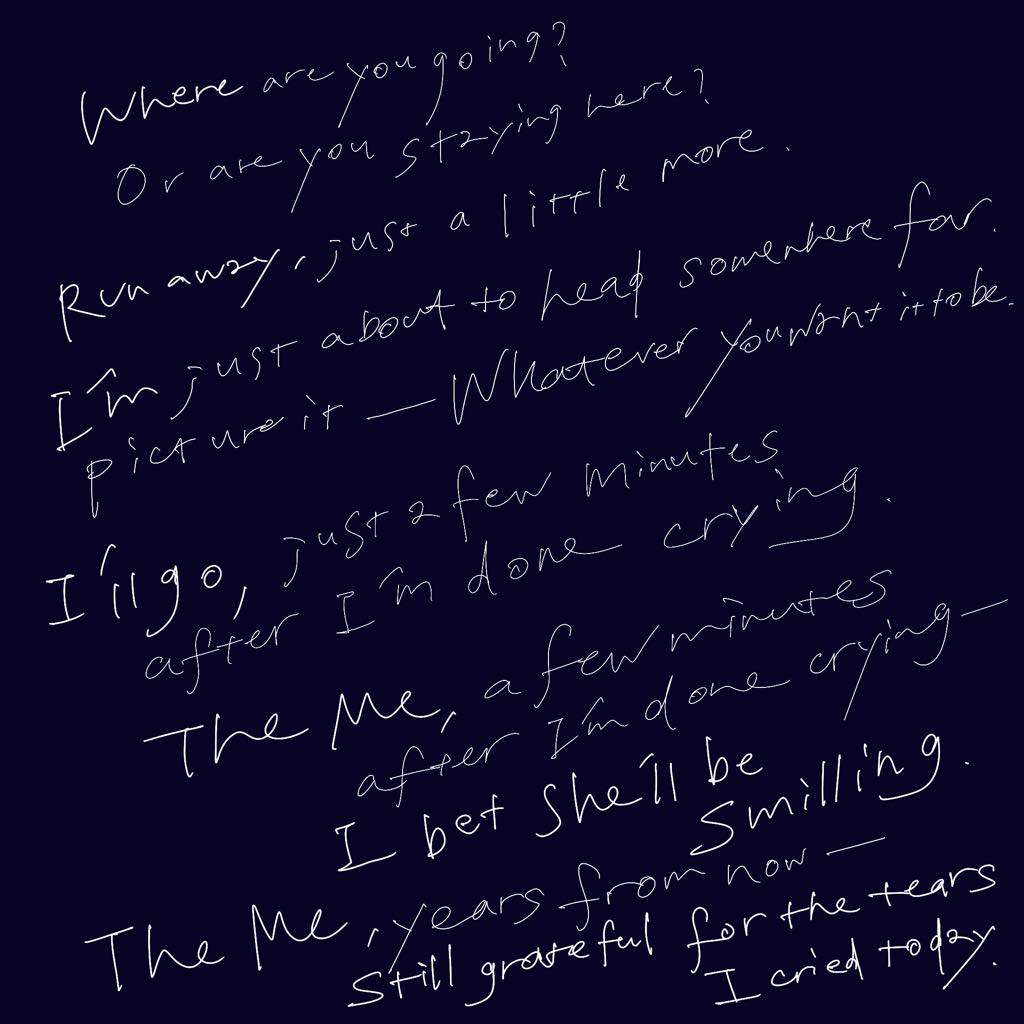 Where are you going?
Or are you staying here?
Run away, just a little more.
I'm just about to head somewhere far.
picture it — Whatever you want it to be.
I'll go, just a few minutes
after I'm done crying.
The Me, a few minutes
after I'm done crying —
I bet She'll be
Smilling.
The Me, years from now —
Still grateful for the tears
I cried today.